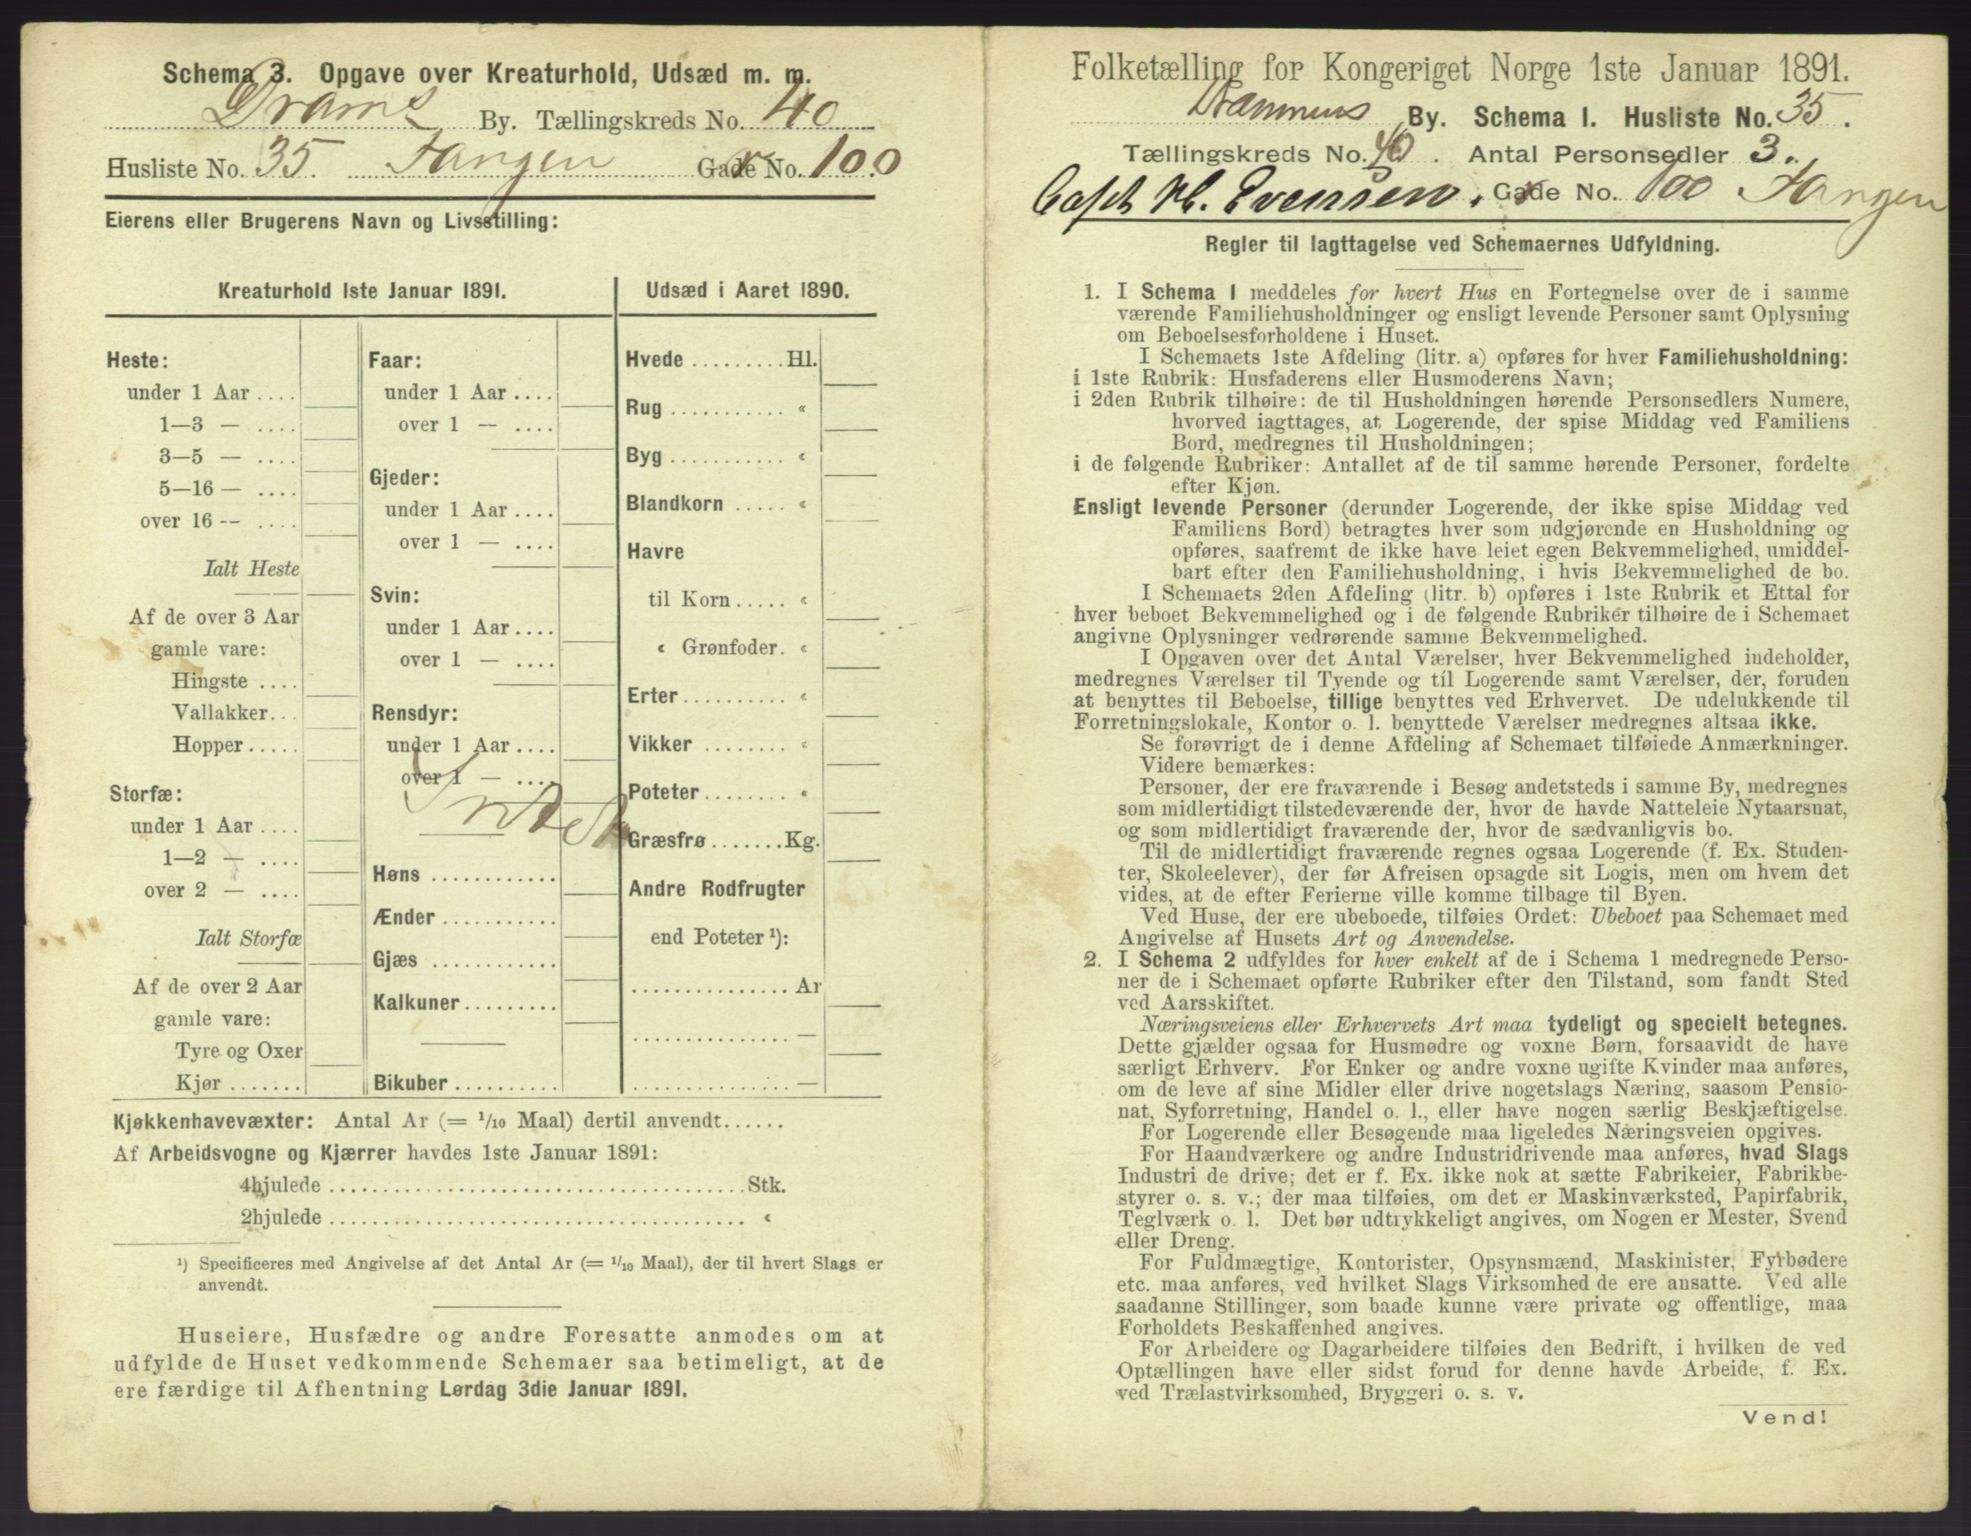 Schema 3. Opgave over Kreaturhold, Udsæd m. m.
Drams By. Tællingskreds No. 40
Husliste No. 35. Tangen Gade No. 100
Eierens eller Brugerens Navn og Livsstilling:
Kreaturhold 1ste Januar 1891.
Heste:
under 1 Aar ....
1—3 — ....
3—5 — ....
5—16 — ....
over 16 -- ....
Ialt Heste
Af de over 3 Aar
gamle vare:
Hingste ....
Vallakker...
Hopper.....
Storfæ:
under 1 Aar ....
1—2 — ....
over 2 — ....
Ialt Storfæ
Af de over 2 Aar
gamle vare:
Tyre og Oxer
Kjør .......
Faar:
under 1 Aar ....
over 1 — ....
Gjeder:
under 1 Aar ....
over 1 — ....
Svin:
under 1 Aar....
over 1 — ....
Rensdyr:
under 1 Aar ....
over 1 — ....
Intet
Høns ............
Ænder ...........
Gjæs ............
Kalkuner.........
Bikuber ..........
Udsæd i Aaret 1890.
Hvede .........Hl.
Rug ........... «
Byg ........... «
Blandkorn ..... «
Havre
til Korn ..... «
« Grønfoder. «
Erter .......... «
Vikker ........ «
Poteter ........ «
Græsfrø .......Kg.
Andre Rodfrugter
end Poteter ¹):
............... Ar
............... —
............... —
Kjøkkenhavevæxter: Antal Ar (= 1/10 Maal) dertil anvendt......
Af Arbeidsvogne og Kjærrer havdes 1ste Januar 1891:
4hjulede ........................................ Stk.
2hjulede ........................................ «
¹) Specificeres med Angivelse af det Antal Ar (= 1/10 Maal), der til hvert Slags er
anvendt.
Huseiere, Husfædre og andre Foresatte anmodes om at
udfylde de Huset vedkommende Schemaer saa betimeligt, at de
ere færdige til Afhentning Lørdag 3die Januar 1891.
Folketælling for Kongeriget Norge 1ste Januar 1891.
Drammens By. Schema 1. Husliste No. 35.
Tællingskreds No. 40. Antal Personsedler 3.
Capt H. Evensen. Gade No. 100 Tangen
Regler til Iagttagelse ved Schemaernes Udfyldning.
1. I Schema 1 meddeles for hvert Hus en Fortegnelse over de i samme
værende Familiehusholdninger og ensligt levende Personer samt Oplysning
om Beboelsesforholdene i Huset.
I Schemaets 1ste Afdeling (litr. a) opføres for hver Familiehusholdning:
i 1ste Rubrik: Husfaderens eller Husmoderens Navn;
i 2den Rubrik tilhøire: de til Husholdningen hørende Personsedlers Numere,
hvorved iagttages, at Logerende, der spise Middag ved Familiens
Bord, medregnes til Husholdningen;
i de følgende Rubriker: Antallet af de til samme hørende Personer, fordelte
efter Kjøn.
Ensligt levende Personer (derunder Logerende, der ikke spise Middag ved
Familiens Bord) betragtes hver som udgjørende en Husholdning og
opføres, saafremt de ikke have leiet egen Bekvemmelighed, umiddel-
bart efter den Familiehusholdning, i hvis Bekvemmelighed de bo.
I Schemaets 2den Afdeling (litr. b) opføres i 1ste Rubrik et Ettal for
hver beboet Bekvemmelighed og i de følgende Rubriker tilhøire de i Schemaet
angivne Oplysninger vedrørende samme Bekvemmelighed.
I Opgaven over det Antal Værelser, hver Bekvemmelighed indeholder,
medregnes Værelser til Tyende og til Logerende samt Værelser, der, foruden
at benyttes til Beboelse, tillige benyttes ved Erhvervet. De udelukkende til
Forretningslokale, Kontor o. l. benyttede Værelser medregnes altsaa ikke.
Se forøvrigt de i denne Afdeling af Schemaet tilføiede Anmærkninger.
Videre bemærkes:
Personer, der ere fraværende i Besøg andetsteds i samme By, medregnes
som midlertidigt tilstedeværende der, hvor de havde Natteleie Nytaarsnat,
og som midlertidigt fraværende der, hvor de sædvanligvis bo.
Til de midlertidigt fraværende regnes ogsaa Logerende (f. Ex. Studen-
ter, Skoleelever), der før Afreisen opsagde sit Logis, men om hvem det
vides, at de efter Ferierne ville komme tilbage til Byen.
Ved Huse, der ere ubeboede, tilføies Ordet: Ubeboet paa Schemaet med
Angivelse af Husets Art og Anvendelse.
2. I Schema 2 udfyldes for hver enkelt af de i Schema 1 medregnede Perso-
ner de i Schemaet opførte Rubriker efter den Tilstand, som fandt Sted
ved Aarsskiftet.
Næringsveiens eller Erhvervets Art maa tydeligt og specielt betegnes.
Dette gjælder ogsaa for Husmødre og voxne Børn, forsaavidt de have
særligt Erhverv. For Enker og andre voxne ugifte Kvinder maa anføres,
om de leve af sine Midler eller drive nogetslags Næring, saasom Pensio-
nat, Syforretning, Handel o. l., eller have nogen særlig Beskjæftigelse.
For Logerende eller Besøgende maa ligeledes Næringsveien opgives.
For Haandværkere og andre Industridrivende maa anføres, hvad Slags
Industri de drive; det er f. Ex. ikke nok at sætte Fabrikeier, Fabrikbe-
styrer o. s. v.; der maa tilføies, om det er Maskinværksted, Papirfabrik,
Teglværk o. l. Det bør udtrykkeligt angives, om Nogen er Mester, Svend
eller Dreng.
For Fuldmægtige, Kontorister, Opsynsmænd, Maskinister, Fyrbødere
etc. maa anføres, ved hvilket Slags Virksomhed de ere ansatte. Ved alle
saadanne Stillinger, som baade kunne være private og offentlige, maa
Forholdets Beskaffenhed angives.
For Arbeidere og Dagarbeidere tilføies den Bedrift, i hvilken de ved
Optællingen have eller sidst forud for denne havde Arbeide, f. Ex.
ved Trælastvirksomhed, Bryggeri o. s. v.
Vend!